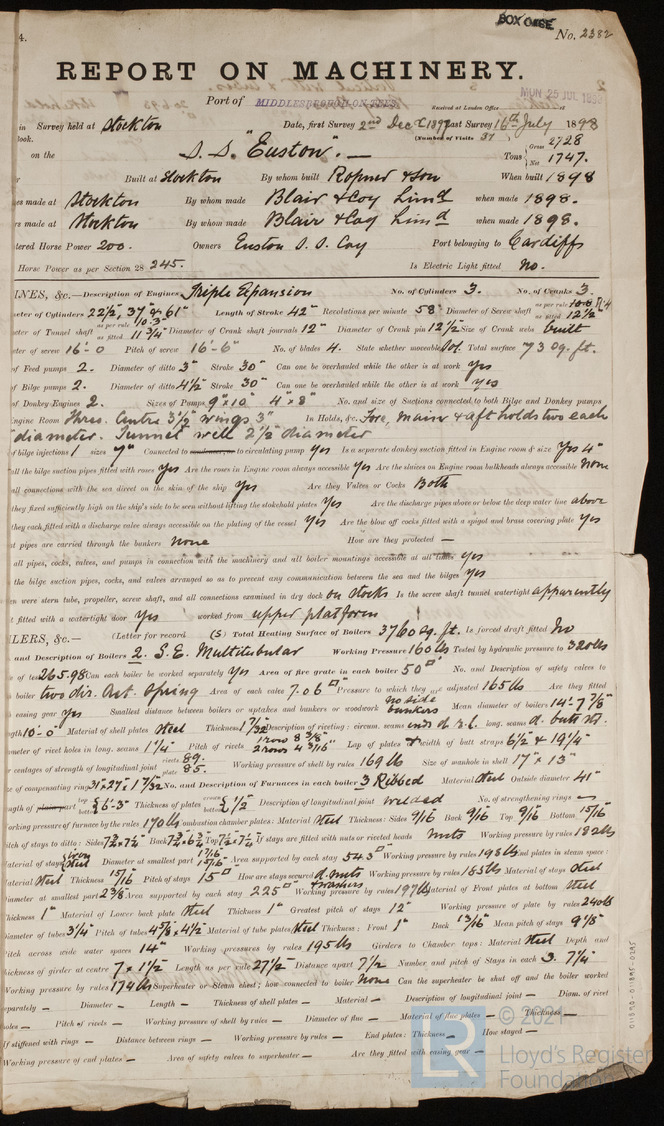 4.
BOX CASE
No. 2382
REPORT ON MACHINERY.
Port of MIDDLESBROUGH-ON-TEES
Received at London Office MON 25 JUL 1898
in Survey held at Stockton Date, first Survey 2nd Dec 1897 Last Survey 16th July 1898
(Number of Visits 37)
on the S.S. "Euston". Tons Gross 2728 Net 1747.
Built at Stockton By whom built Ropner & Son When built 1898
es made at Stockton By whom made Blair & Coy Limd when made 1898.
rs made at Stockton By whom made Blair & Coy Limd when made 1898.
tered Horse Power 200. Owners Euston S.S. Coy Port belonging to Cardiff
Horse Power as per Section 28 245. Is Electric Light fitted No.
INES, &c.—Description of Engines Triple Expansion No. of Cylinders 3. No. of Cranks 3.
eter of Cylinders 22½", 37" & 61" Length of Stroke 42" Revolutions per minute 58 Diameter of Screw shaft as per rule as fitted 12½"
eter of Tunnel shaft as per rule 10.3" as fitted 11¾" Diameter of Crank shaft journals 12" Diameter of Crank pin 12½" Size of Crank webs built
eter of screw 16'-0 Pitch of screw 16'-6" No. of blades 4. State whether moveable No. Total surface 73 sq. ft.
of Feed pumps 2. Diameter of ditto 3" Stroke 30" Can one be overhauled while the other is at work Yes
of Bilge pumps 2. Diameter of ditto 4½" Stroke 30" Can one be overhauled while the other is at work Yes
of Donkey Engines 2. Sizes of Pumps 9"x10" 4"x8" No. and size of Suctions connected to both Bilge and Donkey pumps
Engine Room Three. Centre 3½" wings 3" In Holds, &c. Fore, main & aft holds two each
diameter. Tunnel well 2½" diameter
of bilge injections 1 sizes 7" Connected to to circulating pump Yes Is a separate donkey suction fitted in Engine room & size Yes 4"
all the bilge suction pipes fitted with roses Yes Are the roses in Engine room always accessible Yes Are the sluices on Engine room bulkheads always accessible None
all connections with the sea direct on the skin of the ship Yes Are they Valves or Cocks Both
they fixed sufficiently high on the ship's side to be seen without lifting the stokehold plates Yes Are the discharge pipes above or below the deep water line above
they each fitted with a discharge valve always accessible on the plating of the vessel Yes Are the blow off cocks fitted with a spigot and brass covering plate Yes
t pipes are carried through the bunkers None How are they protected —
all pipes, cocks, valves, and pumps in connection with the machinery and all boiler mountings accessible at all times Yes
the bilge suction pipes, cocks, and valves arranged so as to prevent any communication between the sea and the bilges Yes
en were stern tube, propeller, screw shaft, and all connections examined in dry dock on stocks Is the screw shaft tunnel watertight apparently
t fitted with a watertight door Yes worked from upper platform
ILERS, &c.— (Letter for record (S) Total Heating Surface of Boilers 3760 sq. ft. Is forced draft fitted No
and Description of Boilers 2 S.E. Multitubular Working Pressure 160 lbs Tested by hydraulic pressure to 320 lbs
of test 26.5.98 Can each boiler be worked separately Yes Area of fire grate in each boiler 50 No. and Description of safety valves to
boiler two dir. Act. Spring Area of each valve 7.06 Pressure to which they are adjusted 165 lbs Are they fitted
easing gear Yes Smallest distance between boilers or uptakes and bunkers or woodwork no side bunkers Mean diameter of boilers 14'-7⅞"
ngth 10'-0" Material of shell plates Steel Thickness 1 7/32" Description of riveting: circum. seams ends d.r.l. long. seams d. butt str.
ameter of rivet holes in long. seams 1¼" Pitch of rivets 1 row 8⅜" 2 rows 4 3/16" Lap of plates & width of butt straps 6½ & 19¼"
er centages of strength of longitudinal joint rivets 89. plate 85. Working pressure of shell by rules 169 lbs Size of manhole in shell 17" x 13"
ze of compensating ring 31"x27"x1 7/32 No. and Description of Furnaces in each boiler 3 Ribbed Material Steel Outside diameter 41"
ength of plain part 6'-3" Thickness of plates crown bottom ½" Description of longitudinal joint welded No. of strengthening rings —
orking pressure of furnace by the rules 170 lbs Combustion chamber plates: Material Steel Thickness: Sides 9/16 Back 9/16 Top 9/16 Bottom 15/16
itch of stays to ditto: Sides 7¾x7¼ Back 7¾x6¾ Top 7½x7¼ If stays are fitted with nuts or riveted heads Nuts Working pressure by rules 182 lbs
aterial of stays Iron Steel Diameter at smallest part Area supported by each stay 54.3 Working pressure by rules 198 lbs End plates in steam space:
aterial Steel Thickness 15/16 Pitch of stays 15 How are stays secured d. nuts & washers Working pressure by rules 185 lbs Material of stays Steel
iameter at smallest part 2⅜ Area supported by each stay 225 Working pressure by rules 197 lbs Material of Front plates at bottom Steel
hickness 1" Material of Lower back plate Steel Thickness 1" Greatest pitch of stays 12" Working pressure of plate by rules 240 lb
iameter of tubes 3¼ Pitch of tubes 4⅝ x 4½ Material of tube plates Steel Thickness: Front 1" Back 13/16 Mean pitch of stays 9⅛"
itch across wide water spaces 14" Working pressures by rules 195 lbs Girders to Chamber tops: Material Steel Depth and
hickness of girder at centre 7 x 1½ Length as per rule 27½ Distance apart 7½ Number and pitch of Stays in each 3. 7¼
Working pressure by rules 174 lbs Superheater or Steam chest; how connected to boiler None Can the superheater be shut off and the boiler worked
separately — Diameter — Length — Thickness of shell plates — Material — Description of longitudinal joint — Diam. of rivet
holes — Pitch of rivets — Working pressure of shell by rules — Diameter of flue — Material of flue plates — Thickness —
If stiffened with rings — Distance between rings — Working pressure by rules — End plates: Thickness — How stayed —
Working pressure of end plates — Area of safety valves to superheater — Are they fitted with easing gear —
© 2021
Lloyd's Register
Foundation